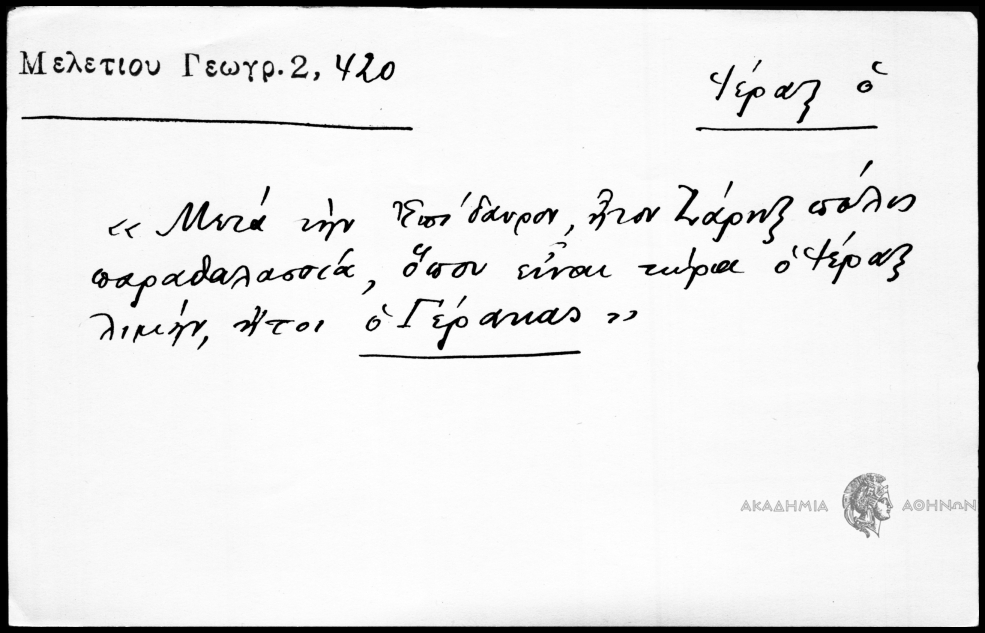 Μελετιου Γεωγρ. 2, 420
Ἱέραξ ὁ
« Μετά τήν Ἐπίδαυρον, ἦτον Ζάρηξ πόλις
παραθαλασσία, ὅπου εἶναι τώρα ὁ Ἱέραξ
λιμήν, ἤτοι ὁ Γέρακας »
ΑΚΑΔΗΜΙΑ ΑΘΗΝΩΝ